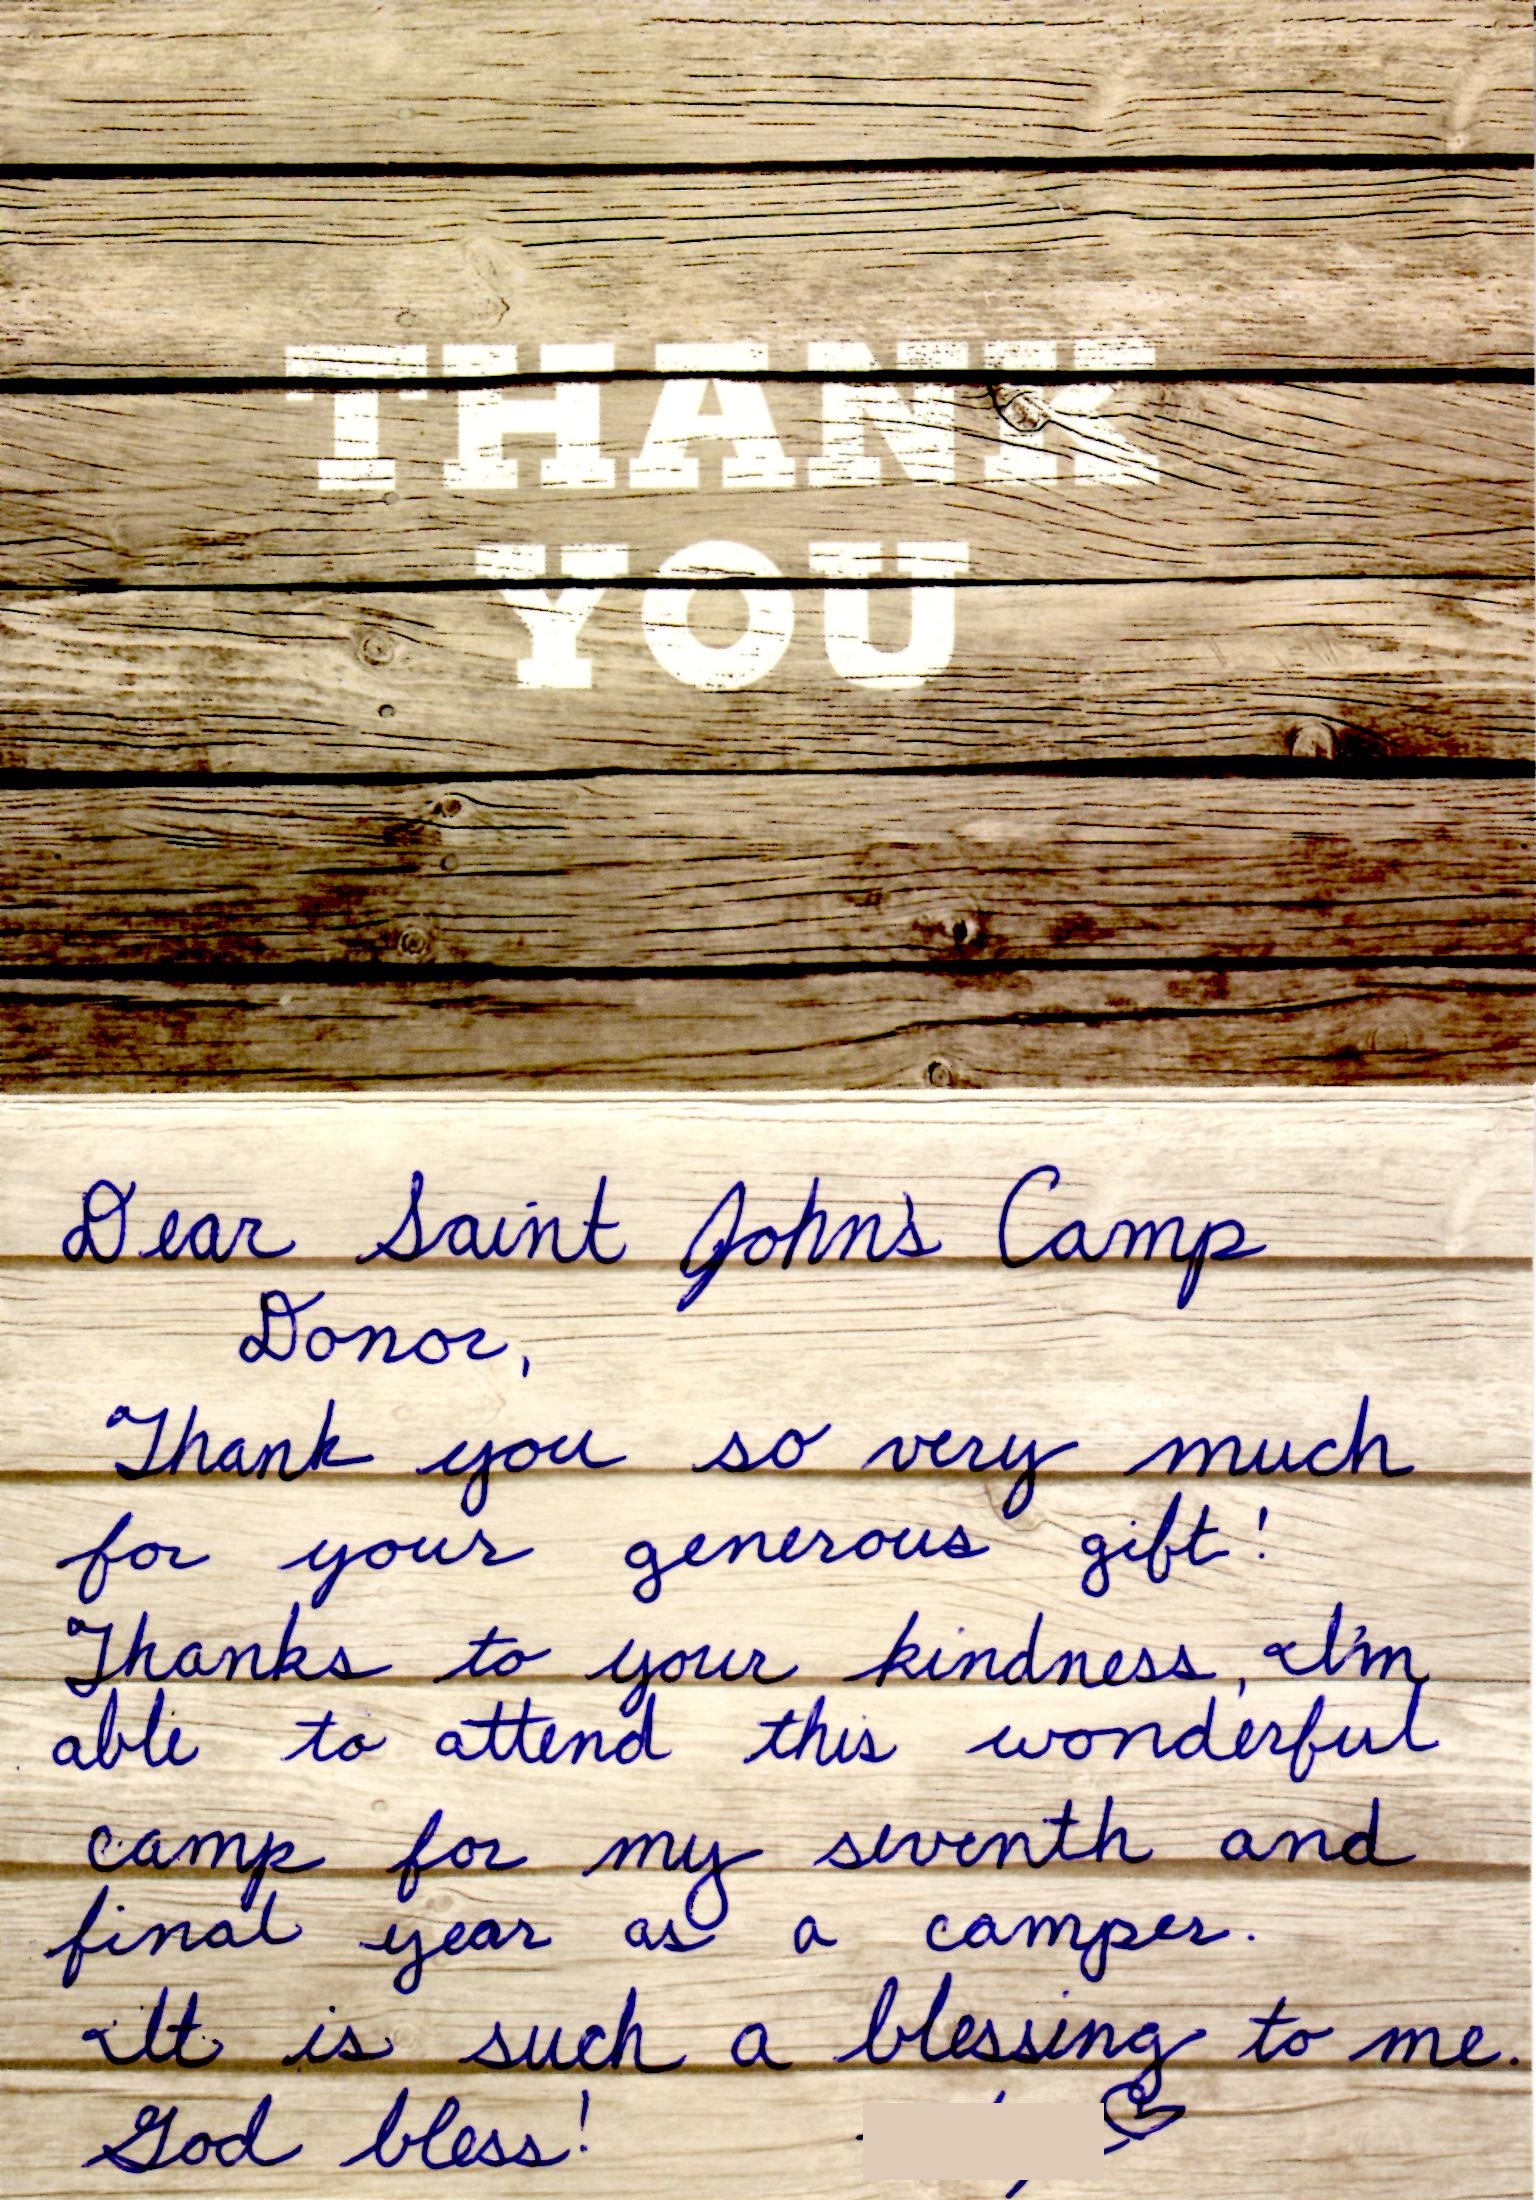 THANK
YOU
Dear Saint John's Camp
Donor,
Thank you so very much
for your generous gift!
Thanks to your kindness, I'm
able to attend this wonderful
camp for my seventh and
final year as a camper.
It is such a blessing to me.
God bless!